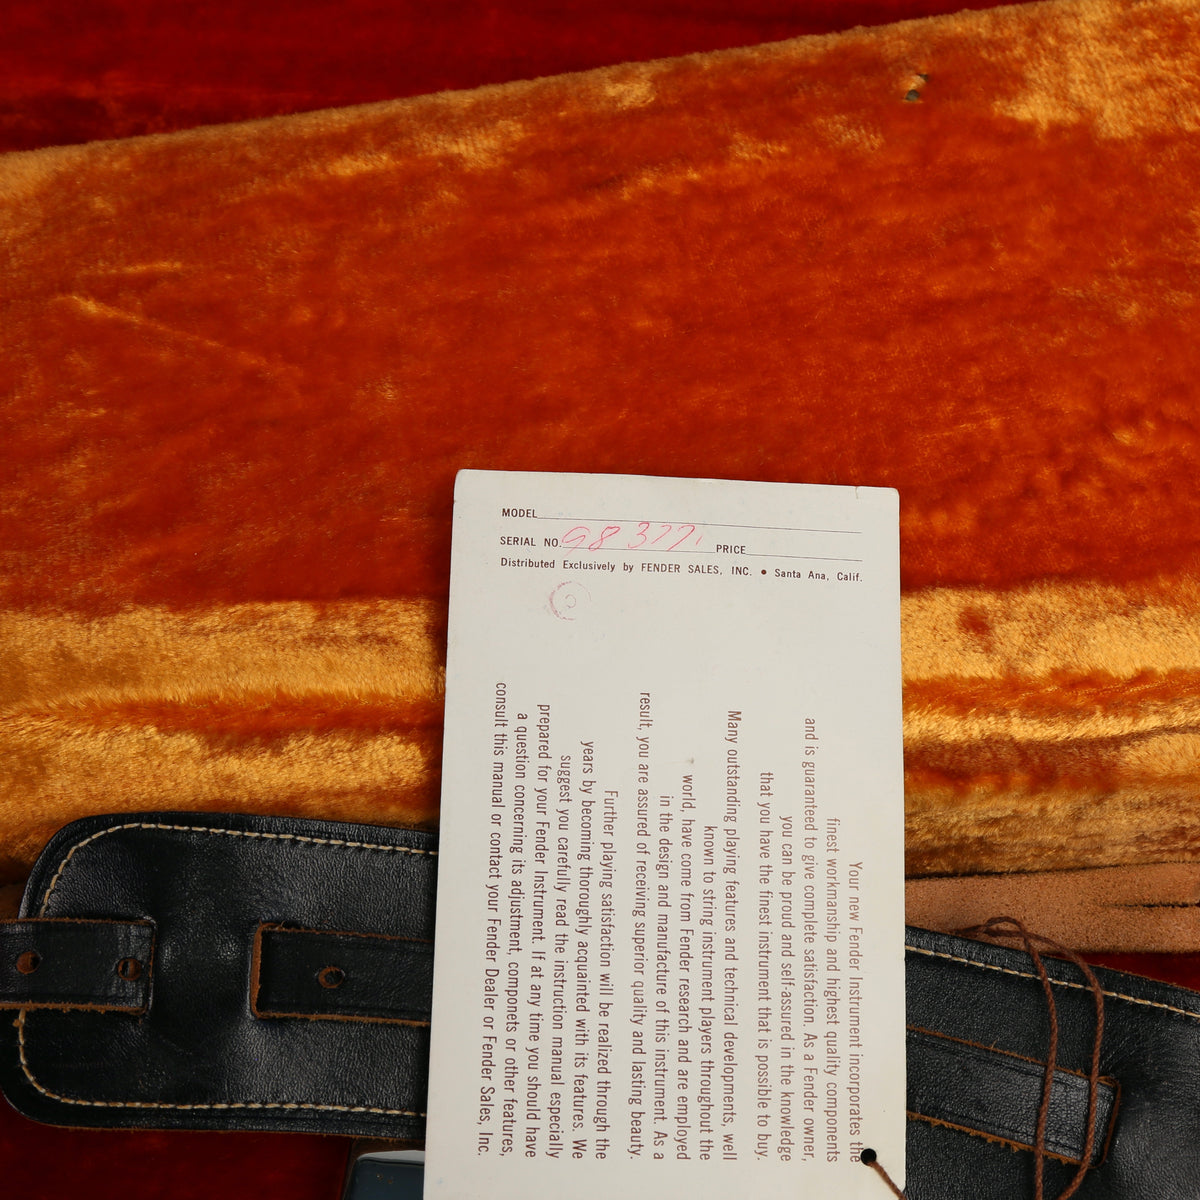 MODEL
SERIAL NO. 98377. PRICE
Distributed Exclusively by FENDER SALES, INC. • Santa Ana, Calif.
Your new Fender Instrument incorporates the
finest workmanship and highest quality components
and is guaranteed to give complete satisfaction. As a Fender owner,
you can be proud and self-assured in the knowledge
that you have the finest instrument that is possible to buy.
Many outstanding playing features and technical developments, well
known to string instrument players throughout the
world, have come from Fender research and are employed
in the design and manufacture of this instrument. As a
result, you are assured of receiving superior quality and lasting beauty.
Further playing satisfaction will be realized through the
years by becoming thoroughly acquainted with its features. We
suggest you carefully read the instruction manual especially
prepared for your Fender Instrument. If at any time you should have
a question concerning its adjustment, componets or other features,
consult this manual or contact your Fender Dealer or Fender Sales, Inc.